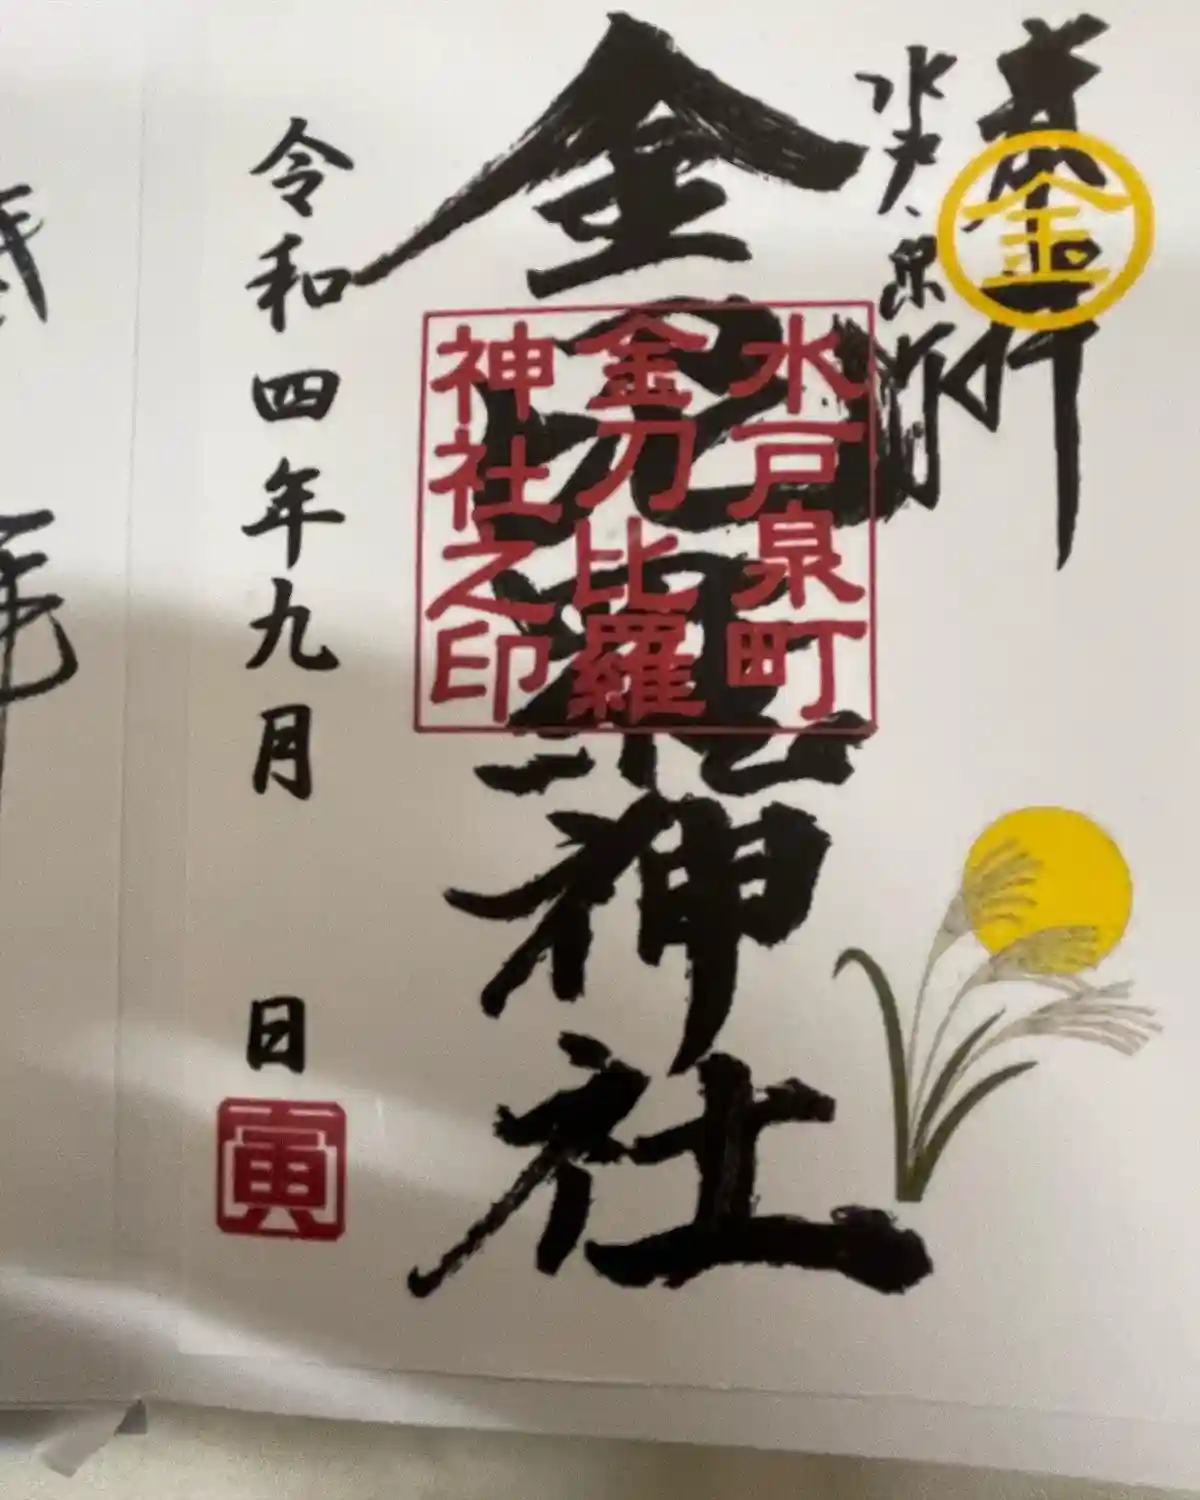 奉拝
金
水戸・泉町
金刀比羅神社
水戸泉町
金刀比羅
神社之印
令和四年九月 日
寅